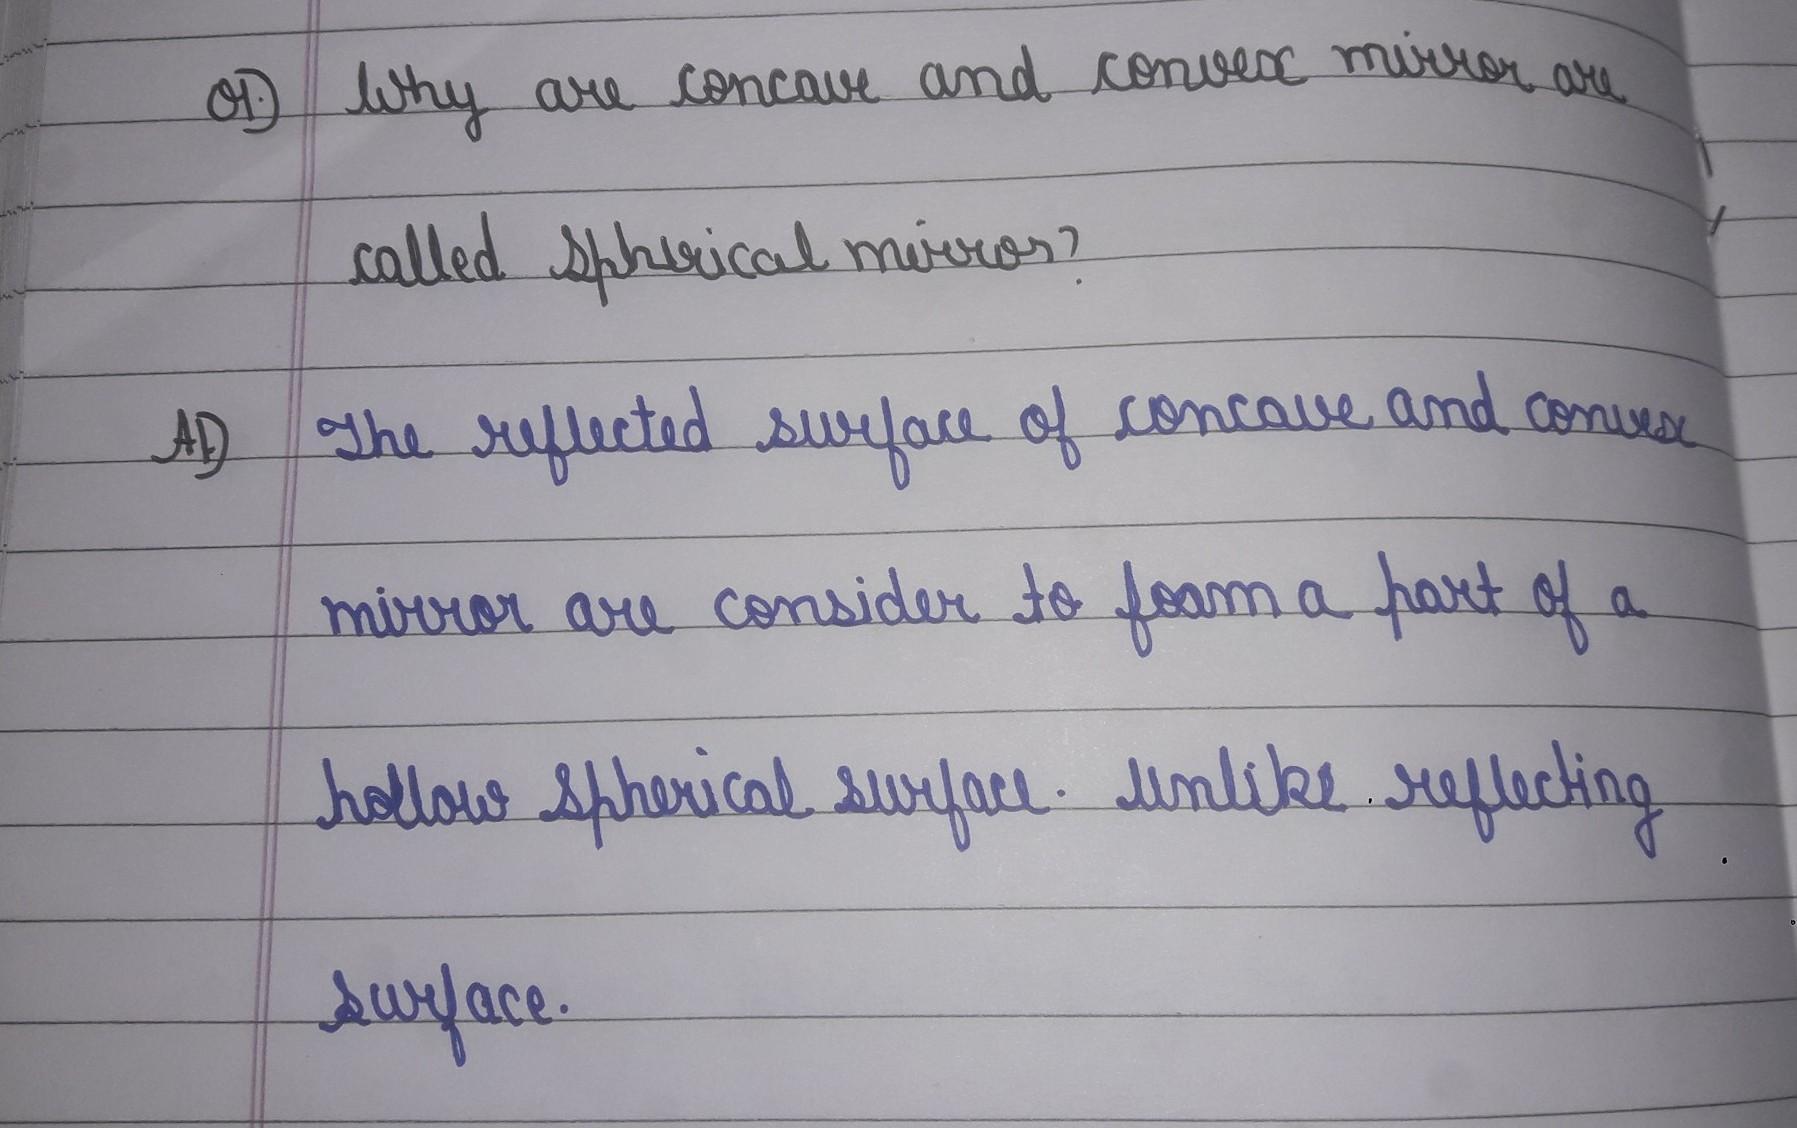 Q1) Why are concave and convex mirror are
called spherical mirror?
A1) The reflected surface of concave and convex
mirror are consider to foam a part of a
hollow spherical surface. Unlike reflecting
surface.